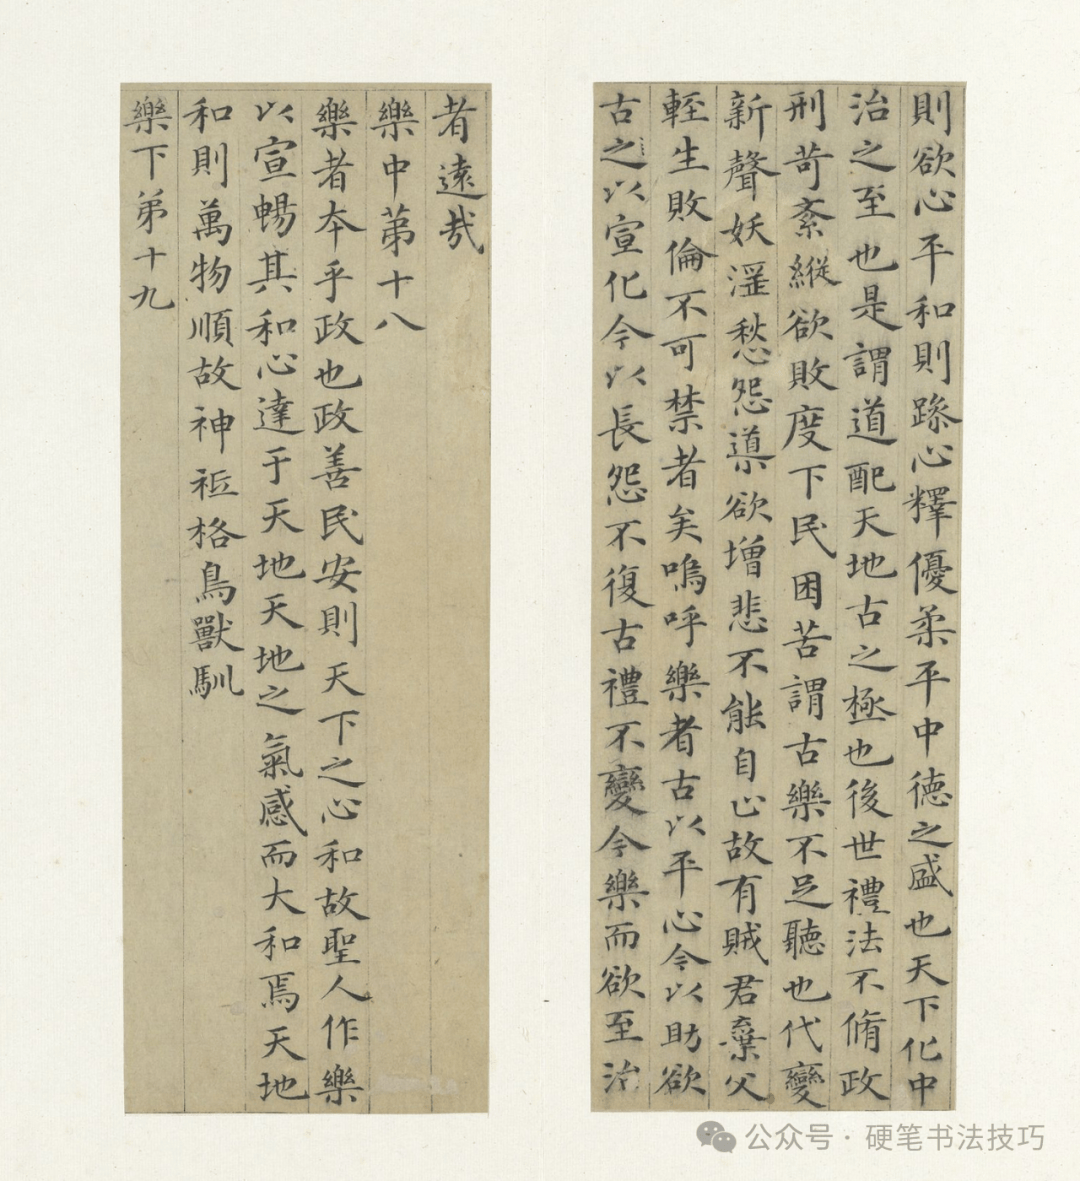 則欲心平和則躁心釋優柔平中德之盛也天下化中
治之至也是謂道配天地古之極也後世禮法不脩政
刑苛紊縱欲敗度下民困苦謂古樂不足聽也代變
新聲妖滛愁怨導欲增悲不能自止故有賊君棄父
輕生敗倫不可禁者矣嗚呼樂者古以平心今以助欲
古之以宣化今以長怨不復古禮不變今樂而欲至治
者遠哉
樂中第十八
樂者本乎政也政善民安則天下之心和故聖人作樂
以宣暢其和心達于天地天地之氣感而大和焉天地
和則萬物順故神祗格鳥獸馴
樂下第十九
公众号·硬笔书法技巧